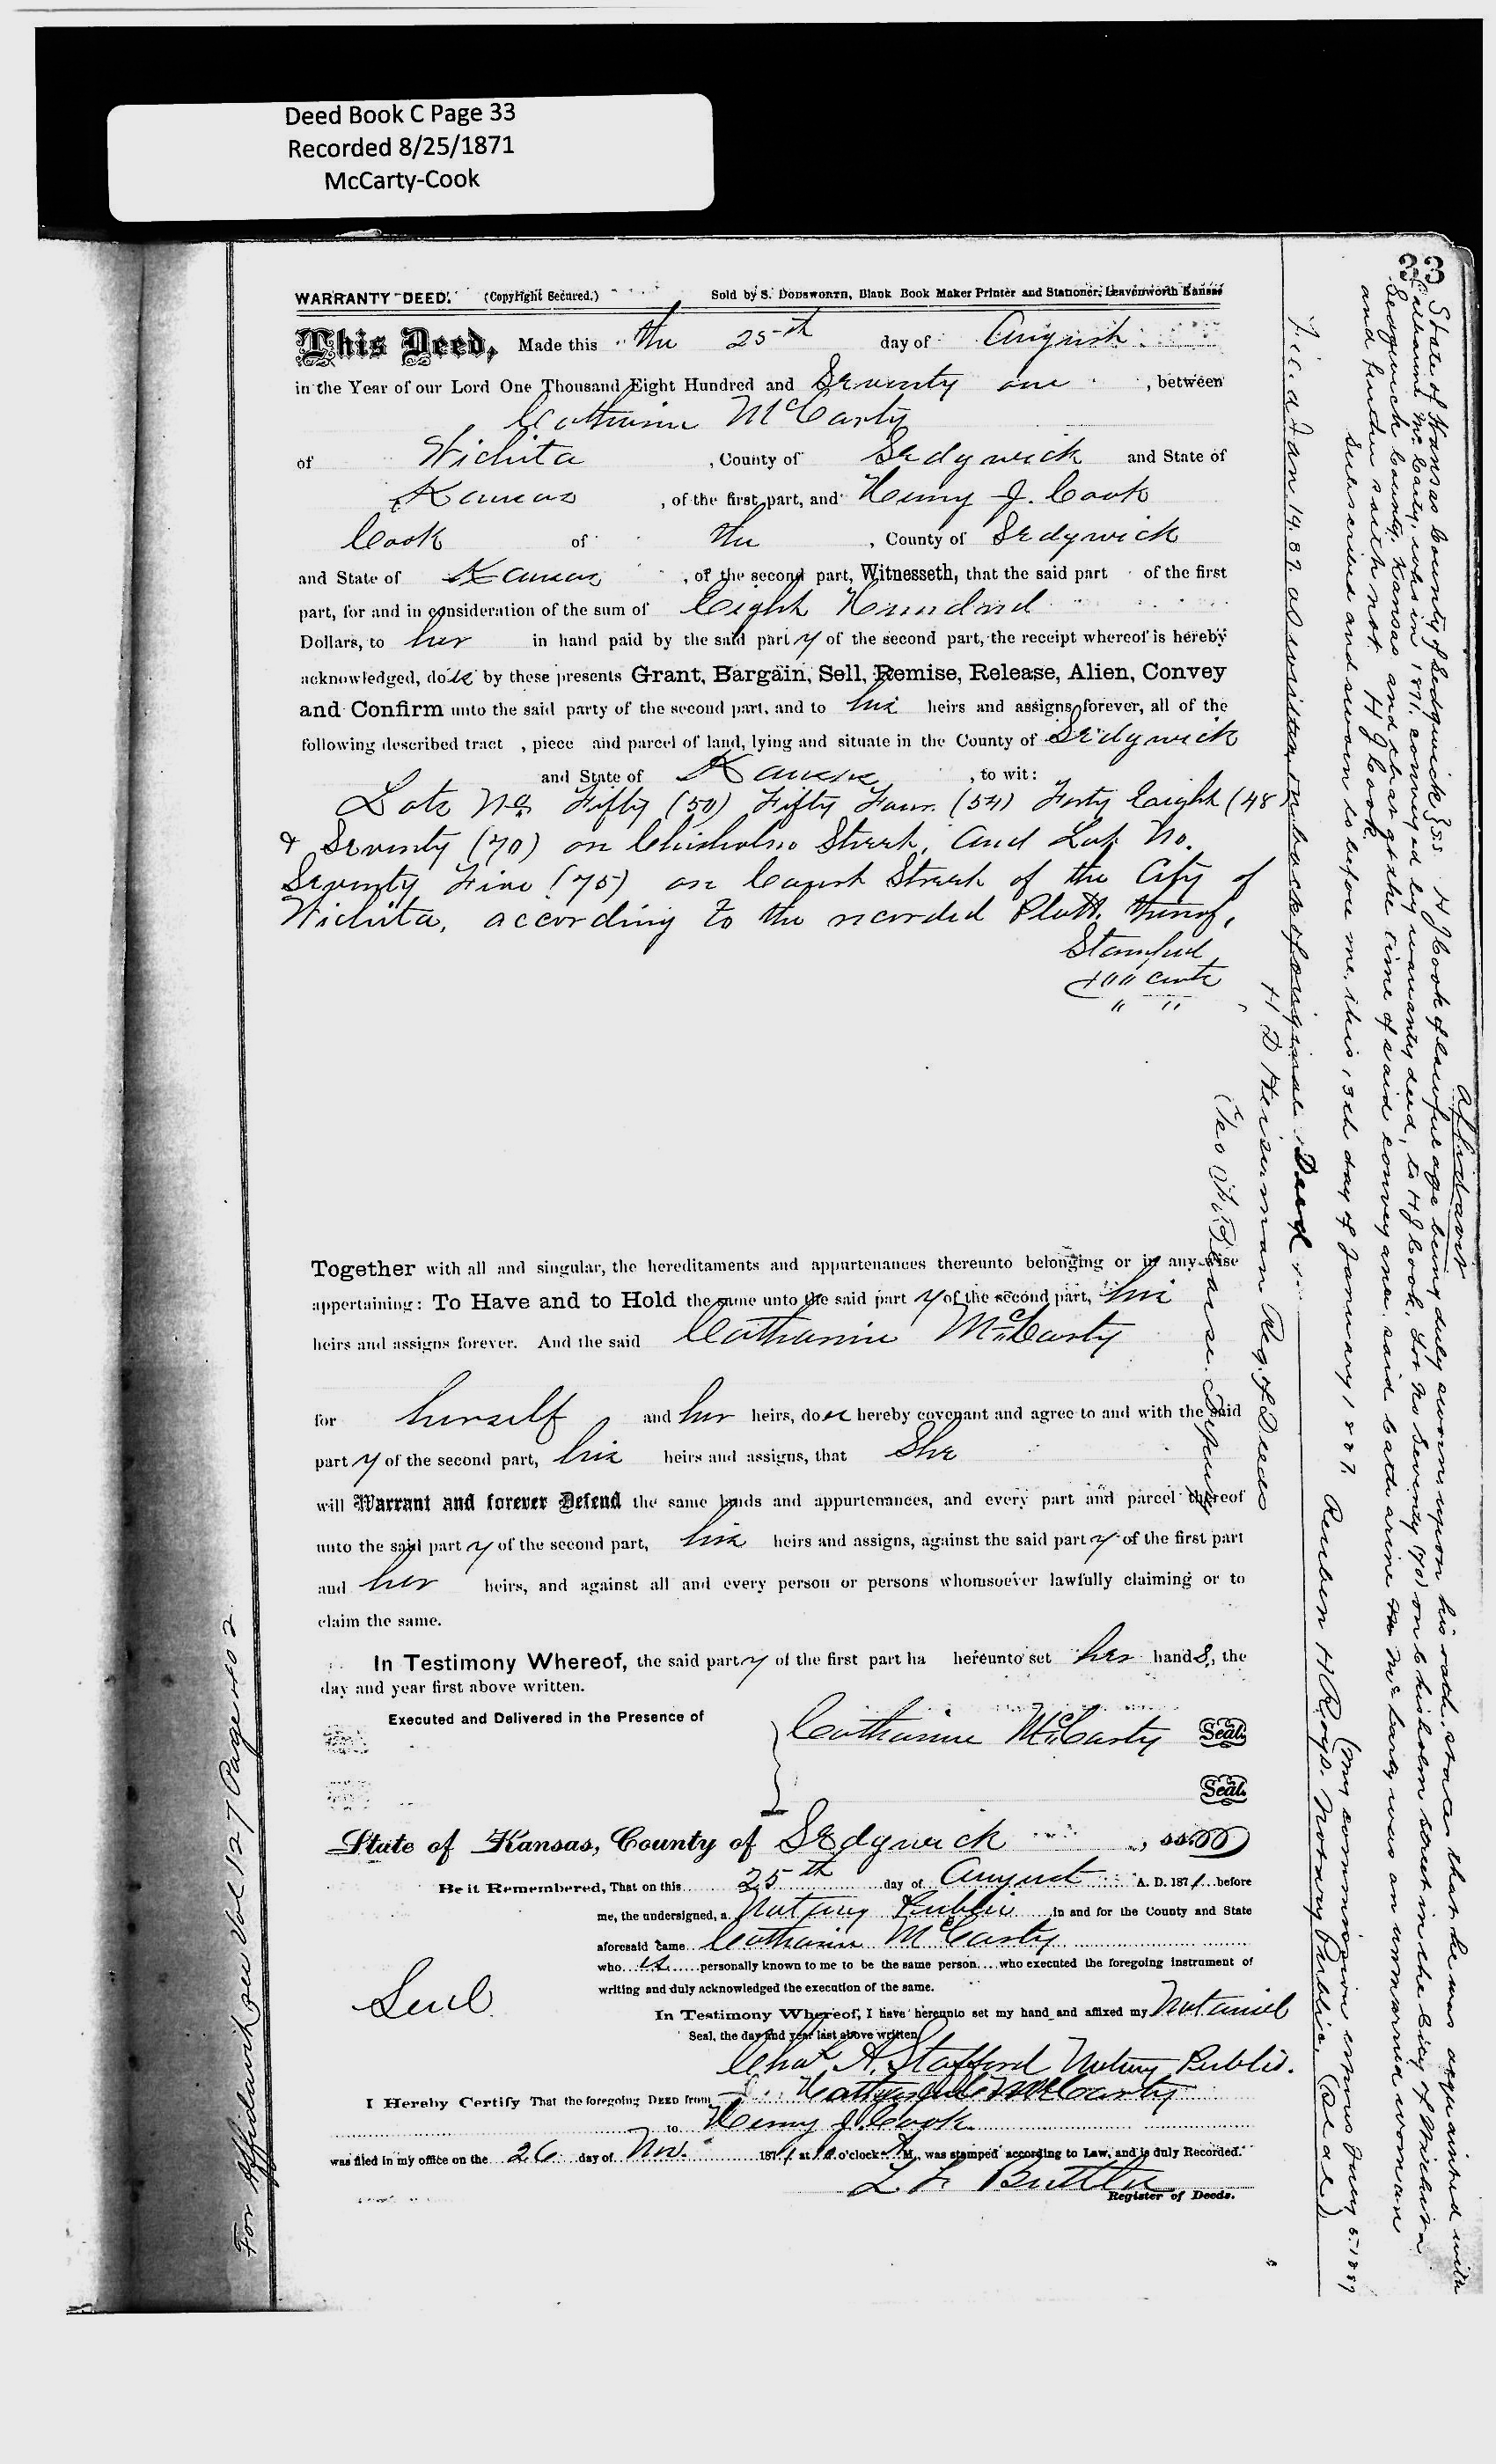 Deed Book C Page 33
Recorded 8/25/1871
McCarty-Cook
33
WARRANTY DEED. (Copyright Secured.) Sold by S. DODSWORTH, Blank Book Maker Printer and Stationer, Leavenworth Kansas
This Deed, Made this the 25th day of August
in the Year of our Lord One Thousand Eight Hundred and Seventy one , between
Catharine McCarty
of Wichita , County of Sedgwick and State of
Kansas , of the first part, and Henry J. Cook
Cook of the , County of Sedgwick
and State of Kansas , of the second part, Witnesseth, that the said part of the first
part, for and in consideration of the sum of Eight Hundred
Dollars, to her in hand paid by the said party of the second part, the receipt whereof is hereby
acknowledged, does by these presents Grant, Bargain, Sell, Remise, Release, Alien, Convey
and Confirm unto the said party of the second part, and to his heirs and assigns forever, all of the
following described tract , piece and parcel of land, lying and situate in the County of Sedgwick
and State of Kansas , to wit:
Lots Nos Fifty (50) Fifty Four (54) Forty Eaight (48)
& Seventy (70) on Chisholm Street, and Lot No.
Seventy Five (75) on Court Street of the City of
Wichita, according to the recorded Platt. thereof,
Stamped
100 cents
" "
Together with all and singular, the hereditaments and appurtenances thereunto belonging or in any wise
appertaining: To Have and to Hold the same unto the said party of the second part, his
heirs and assigns forever. And the said Catharine McCarty
for herself , and her heirs, does hereby covenant and agree to and with the said
party of the second part, his heirs and assigns, that She
will Warrant and forever Defend the same lands and appurtenances, and every part and parcel thereof
unto the said party of the second part, his heirs and assigns, against the said party of the first part
and her heirs, and against all and every person or persons whomsoever lawfully claiming or to
claim the same.
In Testimony Whereof, the said party of the first part ha hereunto set her hands, the
day and year first above written.
Executed and Delivered in the Presence of
Catharine McCarty Seal.
Seal.
State of Kansas, County of Sedgwick , ss.
Be it Remembered, That on this 25th day of August A. D. 1871 before
me, the undersigned, a Notary Public in and for the County and State
aforesaid came Catharine McCarty
who is personally known to me to be the same person who executed the foregoing instrument of
writing and duly acknowledged the execution of the same.
Seal
In Testimony Whereof, I have hereunto set my hand and affixed my Notarial
Seal, the day and year last above written
Chas A. Stafford Notary Public.
I Hereby Certify That the foregoing DEED from McCarty
to Henry J. Cook
was filed in my office on the 26 day of Nov. 1871 at 10 o'clock A M., was stamped according to Law, and is duly Recorded.
L F Buttler
Register of Deeds.
For Affidavit see Vol 127 Page 402
Affidavit
State of Kansas County of Sedgwick } ss H J Cook of lawful age being duly sworn upon his oath, states that he was acquainted with
Catharine McCarty, who in 1871, conveyed by warranty deed, to H J Cook, Lot No Seventy (70) on Chisholm street in the City of Wichita
Sedgwick County, Kansas and that at the time of said conveyance, said Catharine McCarty was an unmarried woman
and further saith not. H J Cook.
Subscribed and sworn to before me, this 13th day of January 1887. (My commission expires July 5-1889
Reuben H Roys. Notary Public. (Seal)
Filed Jan 14. 87. as written on back of original Deed
H D Heiserman Reg. of Deeds
Deputy